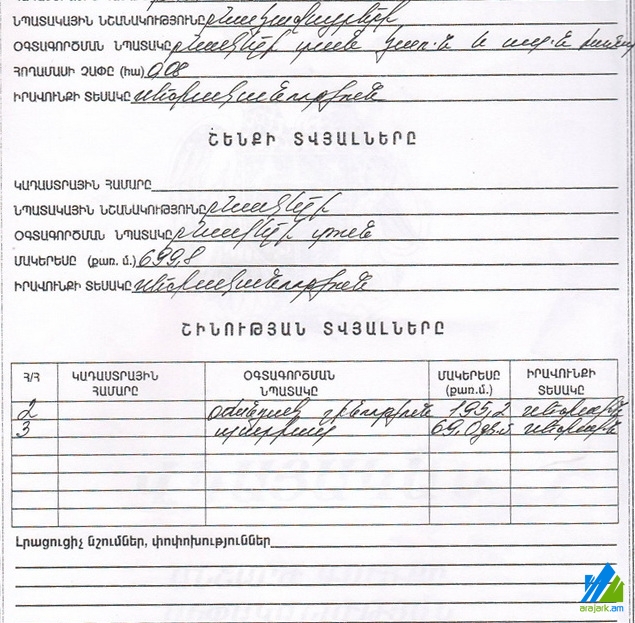 ՆՊԱՏԱԿԱՅԻՆ ՆՇԱՆԱԿՈՒԹՅՈՒՆԸ բնակավայրերի
ՕԳՏԱԳՈՐԾՄԱՆ ՆՊԱՏԱԿԸ բնակելի տան կառ.և սպ.
ՀՈՂԱՄԱՍԻ ՉԱՓԸ (հա) 0,08
ԻՐԱՎՈՒՆՔԻ ՏԵՍԱԿԸ սեփականություն
ՇԵՆՔԻ ՏՎՅԱԼՆԵՐԸ
ԿԱԴԱՍՏՐԱՅԻՆ ՀԱՄԱՐԸ
ՆՊԱՏԱԿԱՅԻՆ ՆՇԱՆԱԿՈՒԹՅՈՒՆԸ բնակելի
ՕԳՏԱԳՈՐԾՄԱՆ ՆՊԱՏԱԿԸ բնակելի տուն
ՄԱԿԵՐԵՍԸ (քառ. մ.) 699,8
ԻՐԱՎՈՒՆՔԻ ՏԵՍԱԿԸ սեփականություն
ՇԻՆՈՒԹՅԱՆ ՏՎՅԱԼՆԵՐԸ
Հ/Հ ԿԱԴԱՍՏՐԱՅԻՆ ՀԱՄԱՐԸ ՕԳՏԱԳՈՐԾՄԱՆ ՆՊԱՏԱԿԸ ՄԱԿԵՐԵՍԸ (քառ.մ.) ԻՐԱՎՈՒՆՔԻ ՏԵՍԱԿԸ
2 օժանդակ շինություն 195,2 սեփական
3 69,0 քմ սեփական
Լրացուցիչ նշումներ, փոփոխություններ
arajark.am